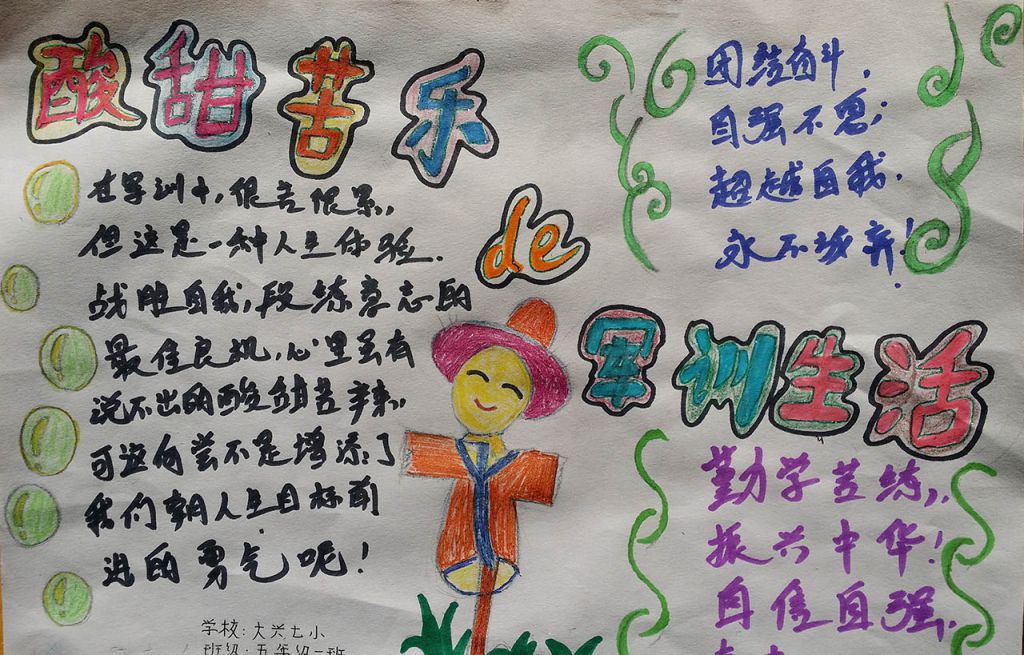 酸甜苦乐
de
军训生活
在军训中,很苦很累,
但这是一种人生体验.
战胜自我,段练意志的
最佳良机,心里虽有
说不出的酸甜苦辣,
可这何尝不是增添了
我们朝人生目标前
进的勇气呢!
学校:大兴七小
班级:五年级一班
团结奋斗,
自强不息;
超越自我,
永不放弃!
勤学苦练,
振兴中华!
自信自强,